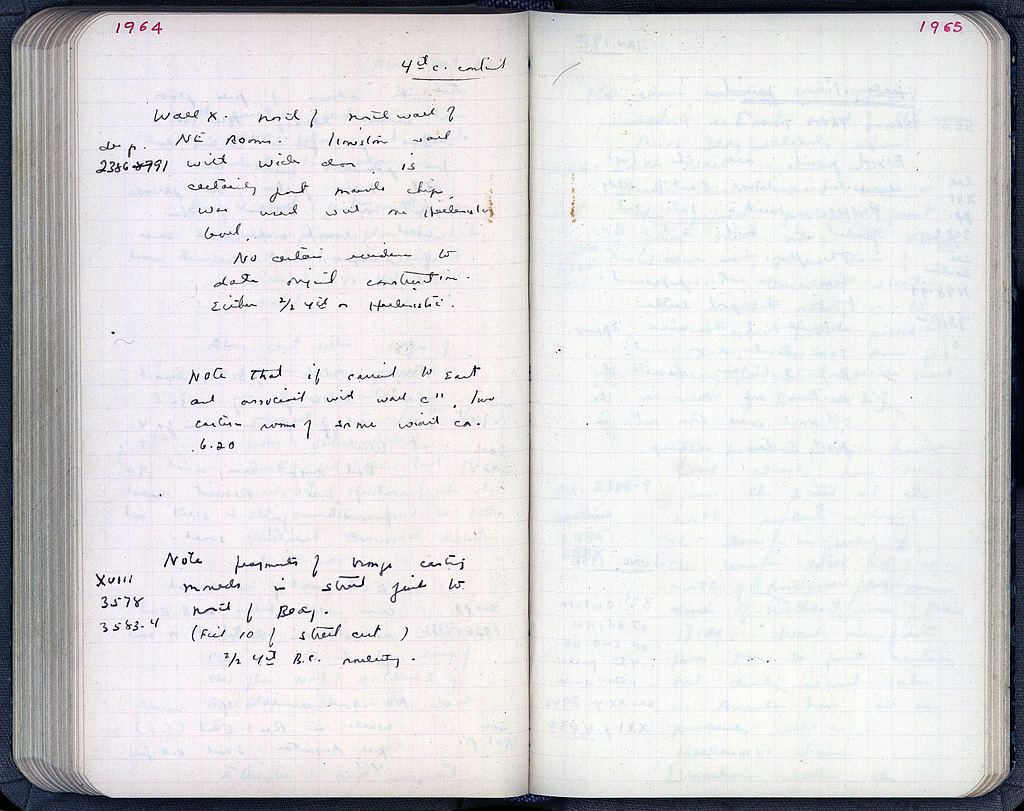 1964
4th c. context
Wall X. north of north wall of
NE Rooms. wall
de p.
2386-991
with wide door. is
certainly just marble chip.
was used with the Hellenistic
level.
No certain evidence to
date original construction.
Either 2/2 4th or Hellenistic.
Note that if carried to East
and associated with wall c", two
eastern rooms of same width ca.
6.20
Note fragments of bronze casting
XVIII
3578
3583-4
moulds in street just to
north of Bldg.
(Fill 10 of street cut)
2/2 4th B.C. pottery.
1965